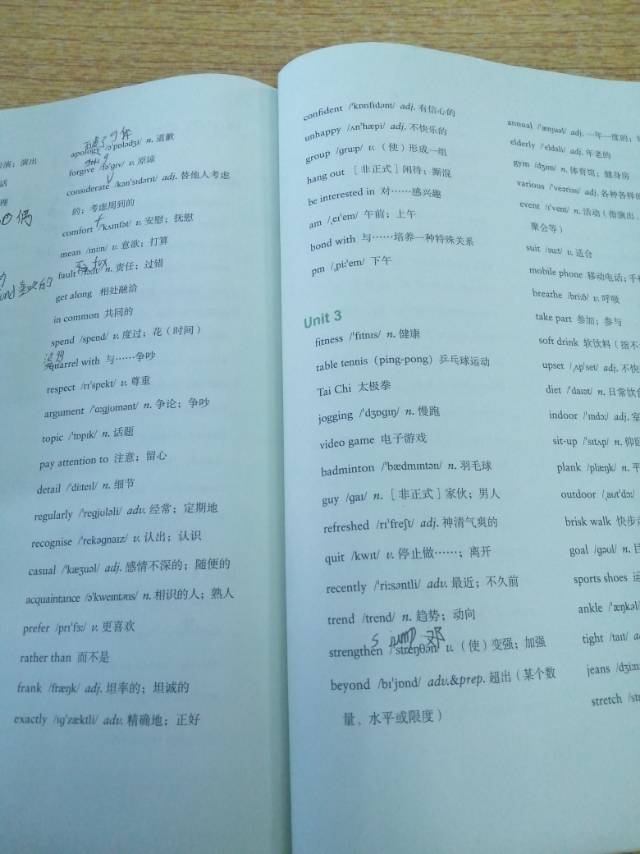 表演；演出
话
理
偶
apologise /ə'pɒlədʒaɪz/ v. 道歉
forgive /fə'gɪv/ v. 原谅
considerate /kən'sɪdərɪt/ adj. 替他人考虑
的；考虑周到的
comfort /'kʌmfət/ v. 安慰；抚慰
mean /miːn/ v. 意欲；打算
fault /fɔːlt/ n. 责任；过错
get along 相处融洽
in common 共同的
spend /spend/ v. 度过；花（时间）
quarrel with 与……争吵
respect /rɪ'spekt/ v. 尊重
argument /'ɑːgjʊmənt/ n. 争论；争吵
topic /'tɒpɪk/ n. 话题
pay attention to 注意；留心
detail /'diːteɪl/ n. 细节
regularly /'regjʊləli/ adv. 经常；定期地
recognise /'rekəgnaɪz/ v. 认出；认识
casual /'kæʒuəl/ adj. 感情不深的；随便的
acquaintance /ə'kweɪntəns/ n. 相识的人；熟人
prefer /prɪ'fɜː/ v. 更喜欢
rather than 而不是
frank /fræŋk/ adj. 坦率的；坦诚的
exactly /ɪg'zæktli/ adv. 精确地；正好
confident /'kɒnfɪdənt/ adj. 有信心的
unhappy /ʌn'hæpi/ adj. 不快乐的
group /gruːp/ v.（使）形成一组
hang out ［非正式］闲待；厮混
be interested in 对……感兴趣
am /ˌeɪ'em/ 午前；上午
bond with 与……培养一种特殊关系
pm /ˌpiː'em/ 下午
Unit 3
fitness /'fɪtnɪs/ n. 健康
table tennis (ping-pong) 乒乓球运动
Tai Chi 太极拳
jogging /'dʒɒgɪŋ/ n. 慢跑
video game 电子游戏
badminton /'bædmɪntən/ n. 羽毛球
guy /gaɪ/ n. ［非正式］家伙；男人
refreshed /rɪ'freʃt/ adj. 神清气爽的
quit /kwɪt/ v. 停止做……；离开
recently /'riːsəntli/ adv. 最近；不久前
trend /trend/ n. 趋势；动向
s jump 邓
strengthen /'streŋθən/ v.（使）变强；加强
beyond /bɪ'jɒnd/ adv.&prep. 超出（某个数
量、水平或限度）
annual /'ænjuəl/ adj. 一年一度的；
elderly /'eldəli/ adj. 年老的
gym /dʒɪm/ n. 体育馆；健身房
various /'veəriəs/ adj. 各种各样的
event /ɪ'vent/ n. 活动（指演出、
聚会等）
suit /suːt/ v. 适合
mobile phone 移动电话；手
breathe /briːð/ v. 呼吸
take part 参加；参与
soft drink 软饮料（指不
upset /ˌʌp'set/ adj. 不快
diet /'daɪət/ n. 日常饮食
indoor /'ɪndɔː/ adj. 室
sit-up /'sɪtʌp/ n. 仰卧
plank /plæŋk/ n. 平
outdoor /ˌaʊt'dɔː/
brisk walk 快步
goal /gəʊl/ n. 目
sports shoes 运
ankle /'æŋkəl/
tight /taɪt/ a
jeans /dʒiːn
stretch /str